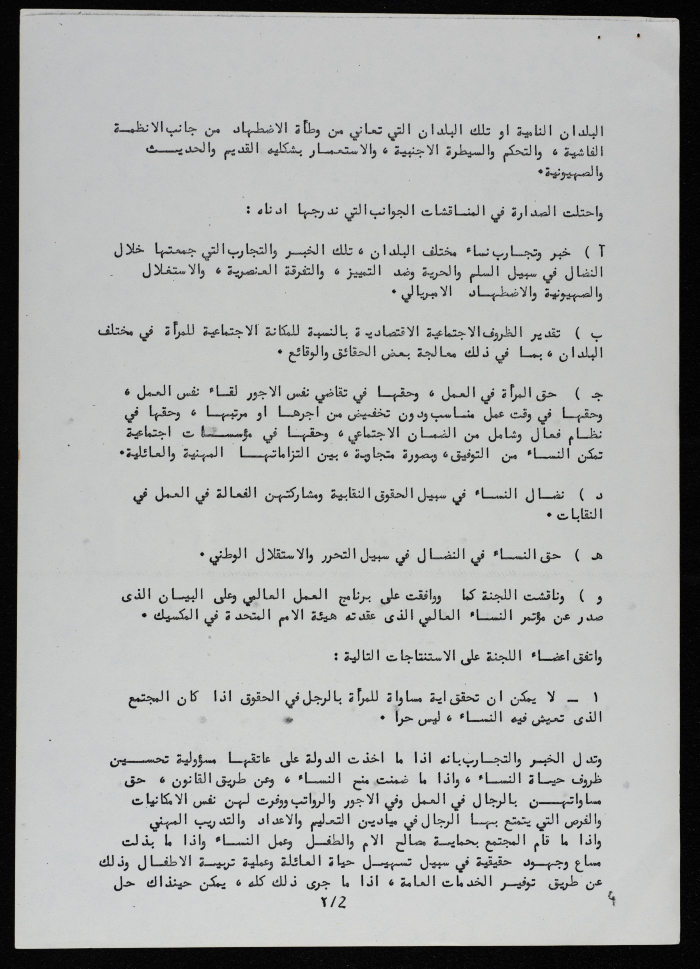 البلدان النامية او تلك البلدان التي تعاني من وطأة الاضطهاد من جانب الانظمة
الفاشية ، والتحكم والسيطرة الاجنبية ، والاستعمار بشكليه القديم والحديث
والصهيونية.
واحتلت الصدارة في المناقشات الجوانب التي ندرجها ادناه :
آ ) خبر وتجارب نساء مختلف البلدان ، تلك الخبر والتجارب التي جمعتها خلال
النضال في سبيل السلم والحرية وضد التمييز ، والتفرقة العنصرية ، والاستغلال
والصهيونية والاضطهاد الامبريالي .
ب ) تقدير الظروف الاجتماعية الاقتصادية بالنسبة للمكانة الاجتماعية للمرأة في مختلف
البلدان ، بما في ذلك معالجة بعض الحقائق والوقائع .
جـ ) حق المرأة في العمل ، وحقها في تقاضي نفس الاجور لقاء نفس العمل ،
وحقها في وقت عمل مناسب ودون تخفيض من اجرها او مرتبها ، وحقها في
نظام فعال وشامل من الضمان الاجتماعي ، وحقها في مؤسسات اجتماعية
تمكن النساء من التوفيق ، وبصورة متجاوبة ، بين التزاماتها المهنية والعائلية.
د ) نضال النساء في سبيل الحقوق النقابية ومشاركتهن الفعالة في العمل في
النقابات .
هـ ) حق النساء في النضال في سبيل التحرر والاستقلال الوطني .
و ) وناقشت اللجنة كما ووافقت على برنامج العمل العالمي وعلى البيان الذى
صدر عن مؤتمر النساء العالمي الذى عقدته هيئة الامم المتحدة في المكسيك .
واتفق اعضاء اللجنة على الاستنتاجات التالية :
١ - لا يمكن ان تحقق اية مساواة للمرأة بالرجل في الحقوق اذا كان المجتمع
الذى تعيش فيه النساء ، ليس حرا .
وتدل الخبر والتجارب بانه اذا ما اخذت الدولة على عاتقها مسؤولية تحسين
ظروف حياة النساء ، واذا ما ضمنت منح النساء ، وعن طريق القانون ، حق
مساواتهن بالرجال في العمل وفي الاجور والرواتب ووفرت لهن نفس الامكانيات
والفرص التي يتمتع بها الرجال في ميادين التعليم والاعداد والتدريب المهني
واذا ما قام المجتمع بحماية مصالح الام والطفل وعمل النساء واذا ما بذلت
مساع وجهود حقيقية في سبيل تسهيل حياة العائلة وعملية تربية الاطفال وذلك
عن طريق توفير الخدمات العامة ، اذا ما جرى ذلك كله ، يمكن حينذاك حل
٢/2